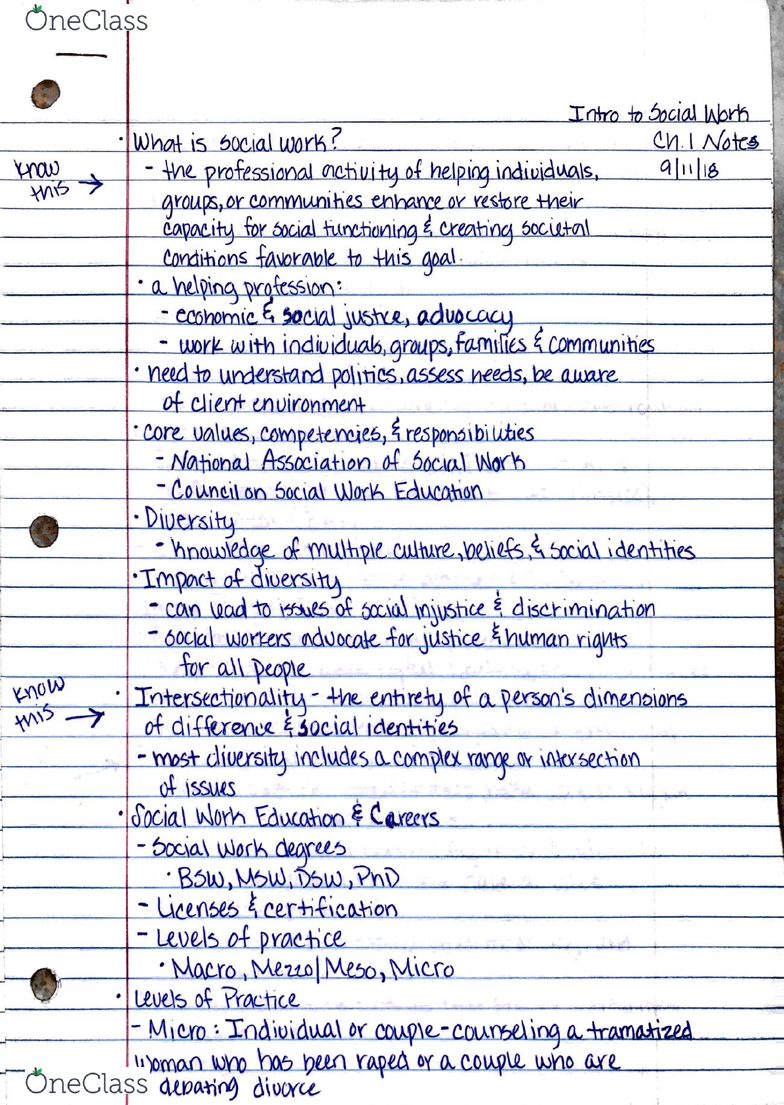 OneClass
Intro to Social Work
• What is social work? Ch. 1 Notes
know this → - the professional activity of helping individuals, 9/11/18
groups, or communities enhance or restore their
capacity for social functioning & creating societal
conditions favorable to this goal.
• a helping profession:
- economic & social justice, advocacy
- work with individuals, groups, families & communities
• need to understand politics, assess needs, be aware
of client environment
• core values, competencies, & responsibilities
- National Association of Social Work
- Council on Social Work Education
• Diversity
- knowledge of multiple culture, beliefs, & social identities
• Impact of diversity
- can lead to issues of social injustice & discrimination
- social workers advocate for justice & human rights
for all people
know this → • Intersectionality - the entirety of a person's dimensions
of difference & social identities
- most diversity includes a complex range or intersection
of issues
• Social Work Education & Careers
- Social Work degrees
• BSW, MSW, DSW, PhD
- Licenses & certification
- Levels of practice
• Macro, Mezzo/Meso, Micro
• Levels of Practice
- Micro: Individual or couple-counseling a tramatized
woman who has been raped or a couple who are
debating divorce
OneClass